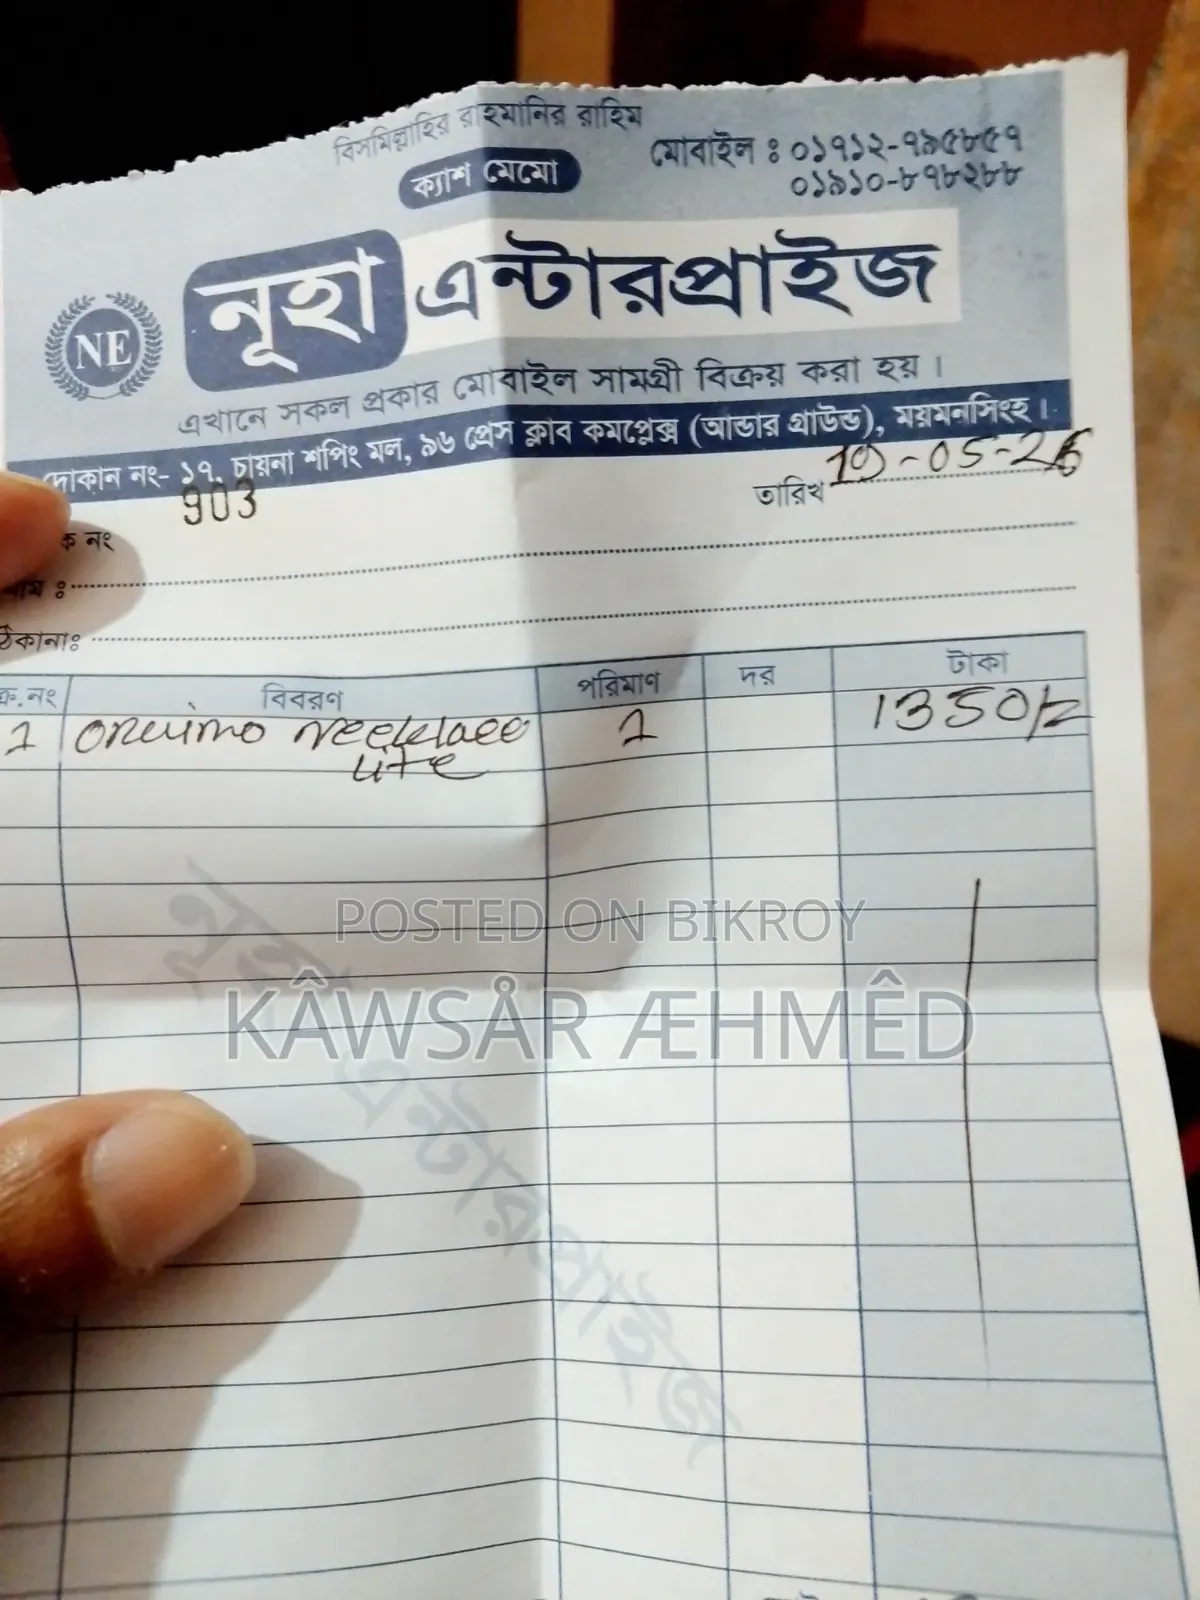 বিসমিল্লাহির রাহমানির রাহিম
ক্যাশ মেমো
মোবাইল ঃ ০১৭১২-৭৯৫৮৫৭
০১৯১০-৮৭৮২৮৮
NE
নূহা এন্টারপ্রাইজ
এখানে সকল প্রকার মোবাইল সামগ্রী বিক্রয় করা হয়।
দোকান নং- ১৭, চায়না শপিং মল, ৯৬ প্রেস ক্লাব কমপ্লেক্স (আন্ডার গ্রাউন্ড), ময়মনসিংহ।
903
তারিখ -05-26
ক নং
নাম ঃ
ঠিকানাঃ
ক্র.নং বিবরণ পরিমাণ দর টাকা
1 oraimo Necklace 1 1350/=
Lite
POSTED ON BIKROY
KÂWSÅR ÆHMÊD
নূহা এন্টারপ্রাইজ